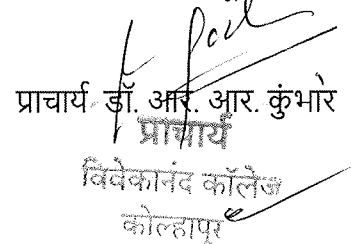 प्राचार्य डॉ. आर. आर. कुंभारे
प्राचार्य
विवेकानंद कॉलेज
कोल्हापूर